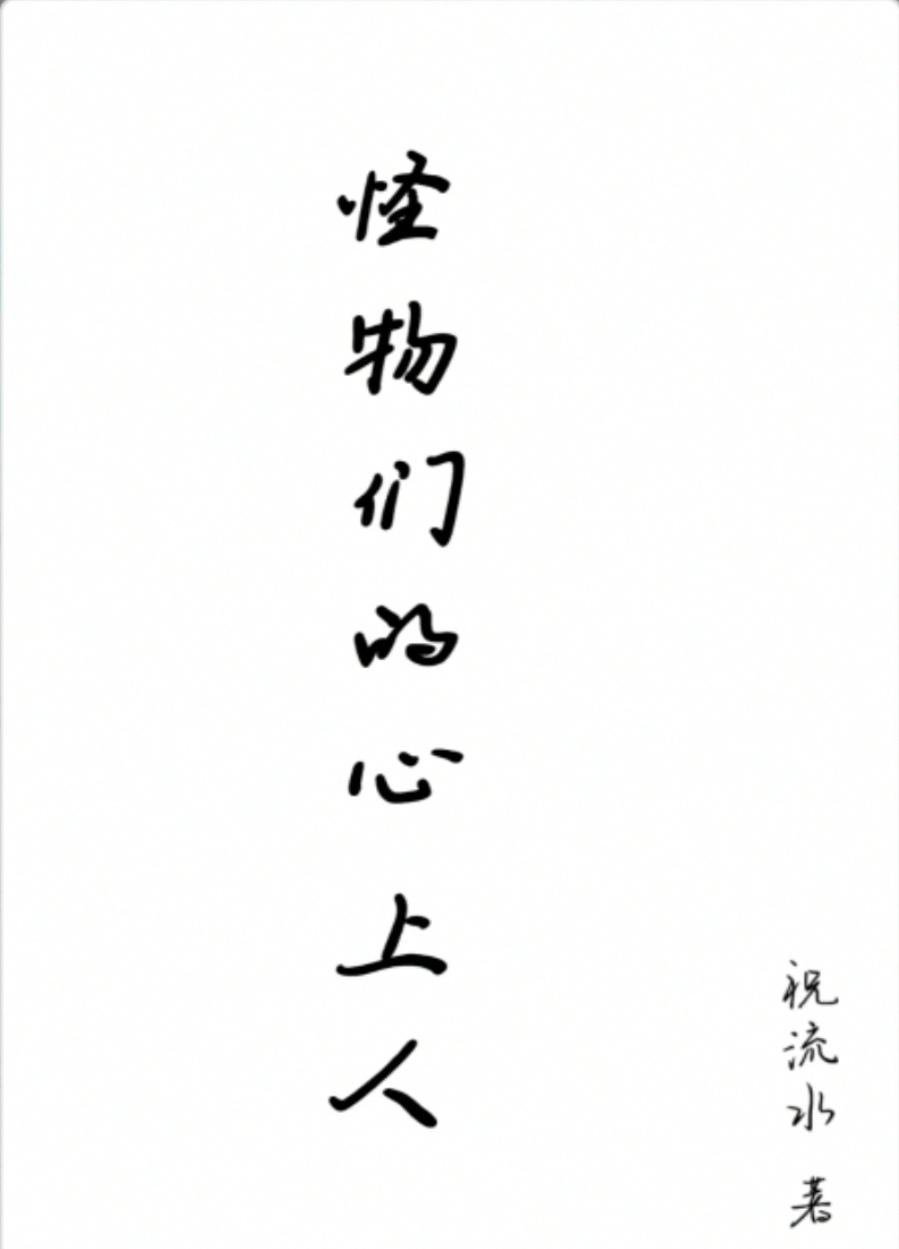 怪物们的心上人
祝流水 著